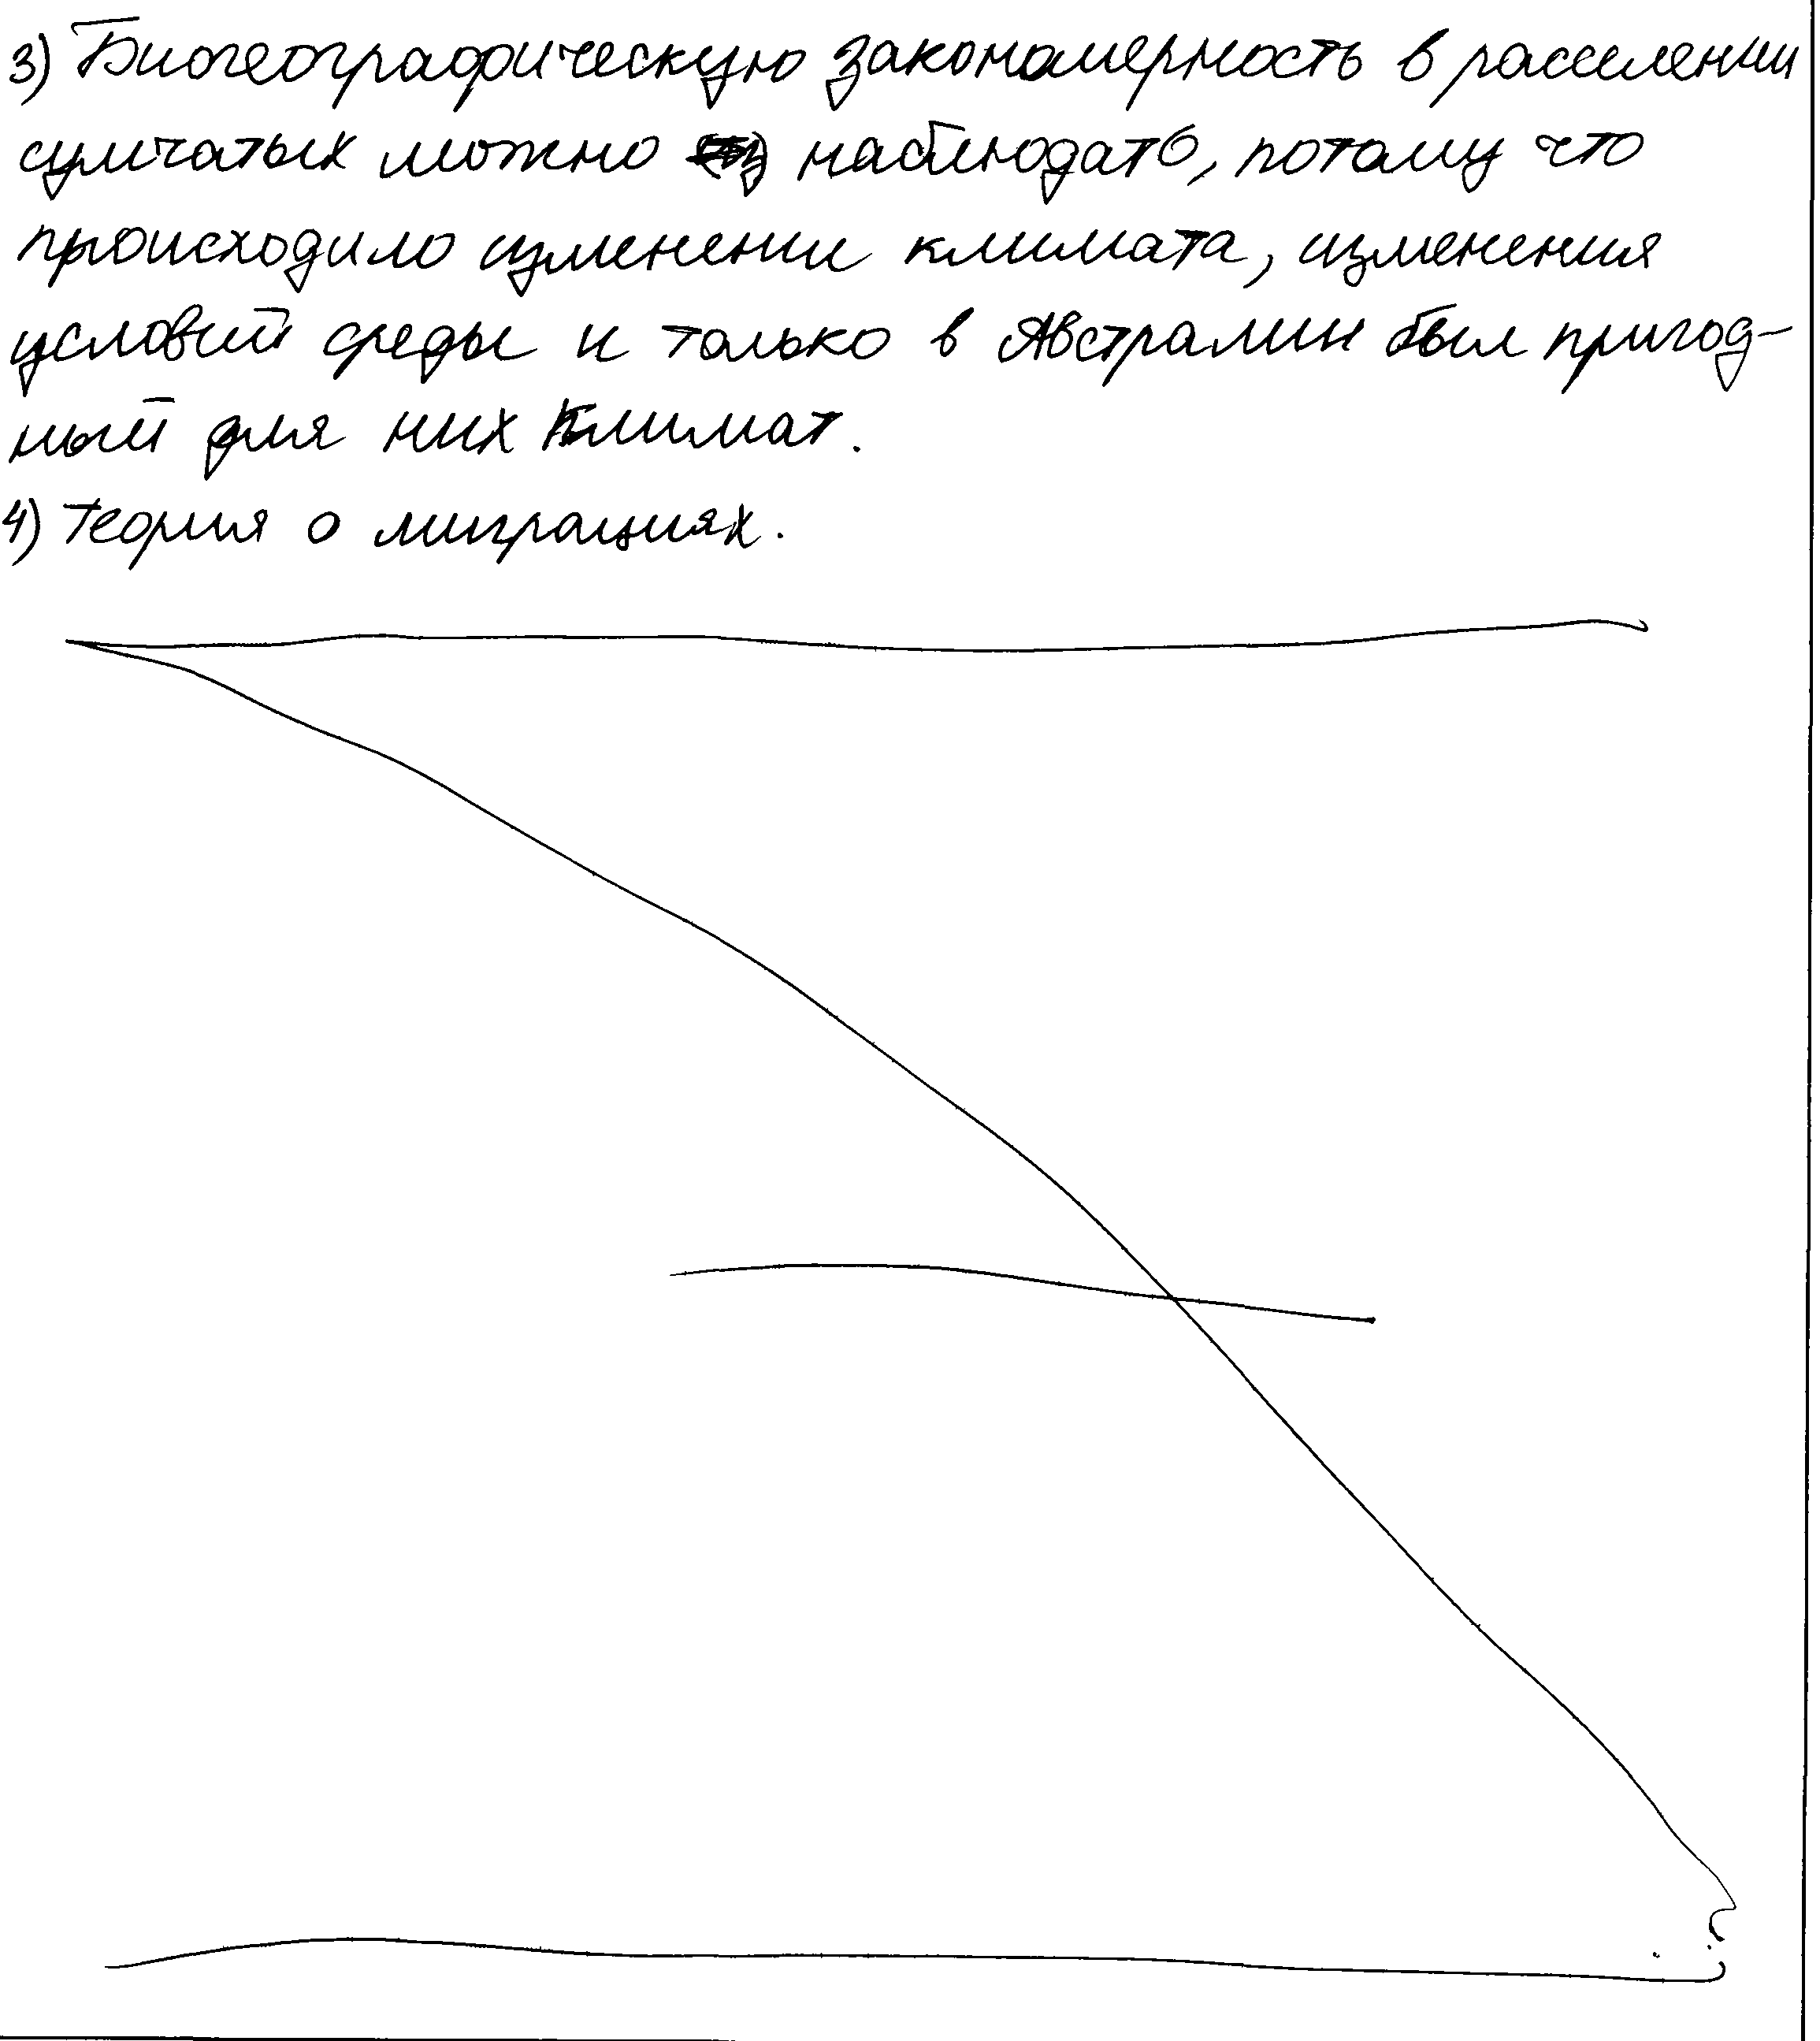 3) Биогеографическую закономерность в расселении
сумчатых можно наблюдать, потому что
происходило изменение климата, изменения
условий среды и только в Австралии был пригод-
ный для них климат.
4) Теория о миграциях.